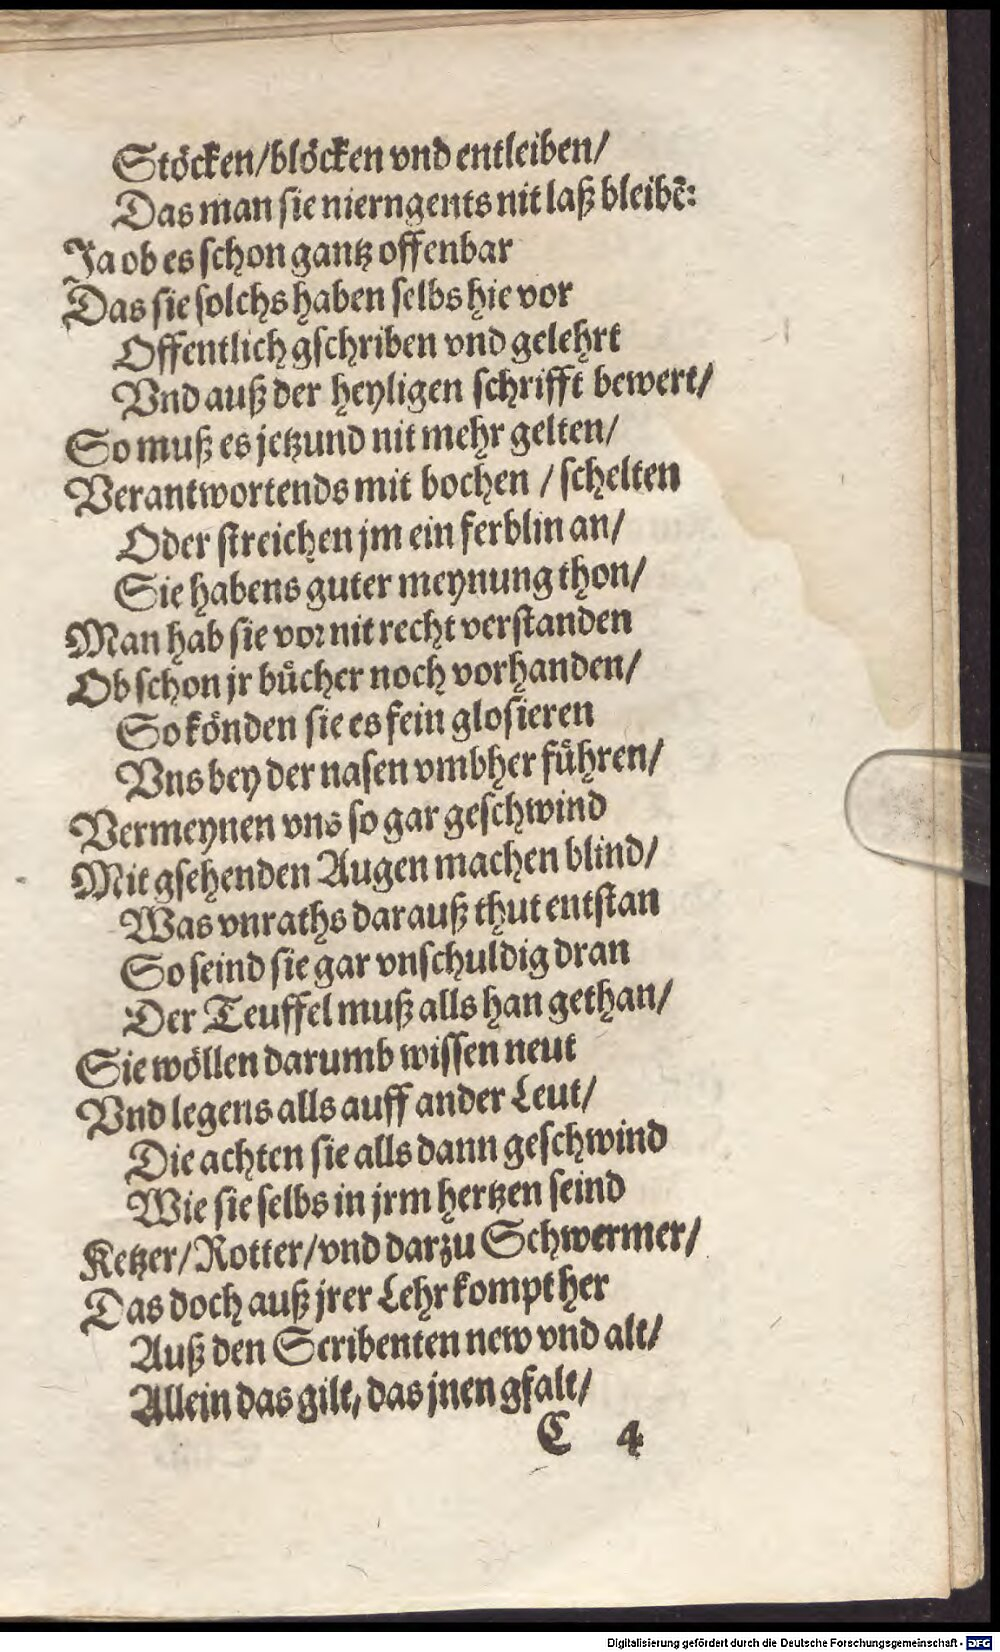 Stöcken/blöcken vnd entleiben/
Das man sie nierngents nit laß bleibē:
Ja ob es schon gantz offenbar
Das sie solchs haben selbs hie vor
Offentlich gschriben vnd gelehrt
Vnd auß der heyligen schrifft bewert/
So muß es jetzund nit mehr gelten/
Verantwortends mit bochen / schelten
Oder streichen jm ein ferblin an/
Sie habens guter meynung thon/
Man hab sie vor nit recht verstanden
Ob schon jr bücher noch vorhanden/
So könden sie es fein glosieren
Vns bey der nasen vmbher führen/
Vermeynen vns so gar geschwind
Mit gsehenden Augen machen blind/
Was vnraths darauß thut entstan
So seind sie gar vnschuldig dran
Der Teuffel muß alls han gethan/
Sie wöllen darumb wissen neut
Vnd legens alls auff ander Leut/
Die achten sie alls dann geschwind
Wie sie selbs in jrm hertzen seind
Ketzer/Rotter/vnd darzu Schwermer/
Das doch auß jrer Lehr kompt her
Auß den Scribenten new vnd alt/
Allein das gilt, das jnen gfalt/
C 4
Digitalisierung gefördert durch die Deutsche Forschungsgemeinschaft - DFG